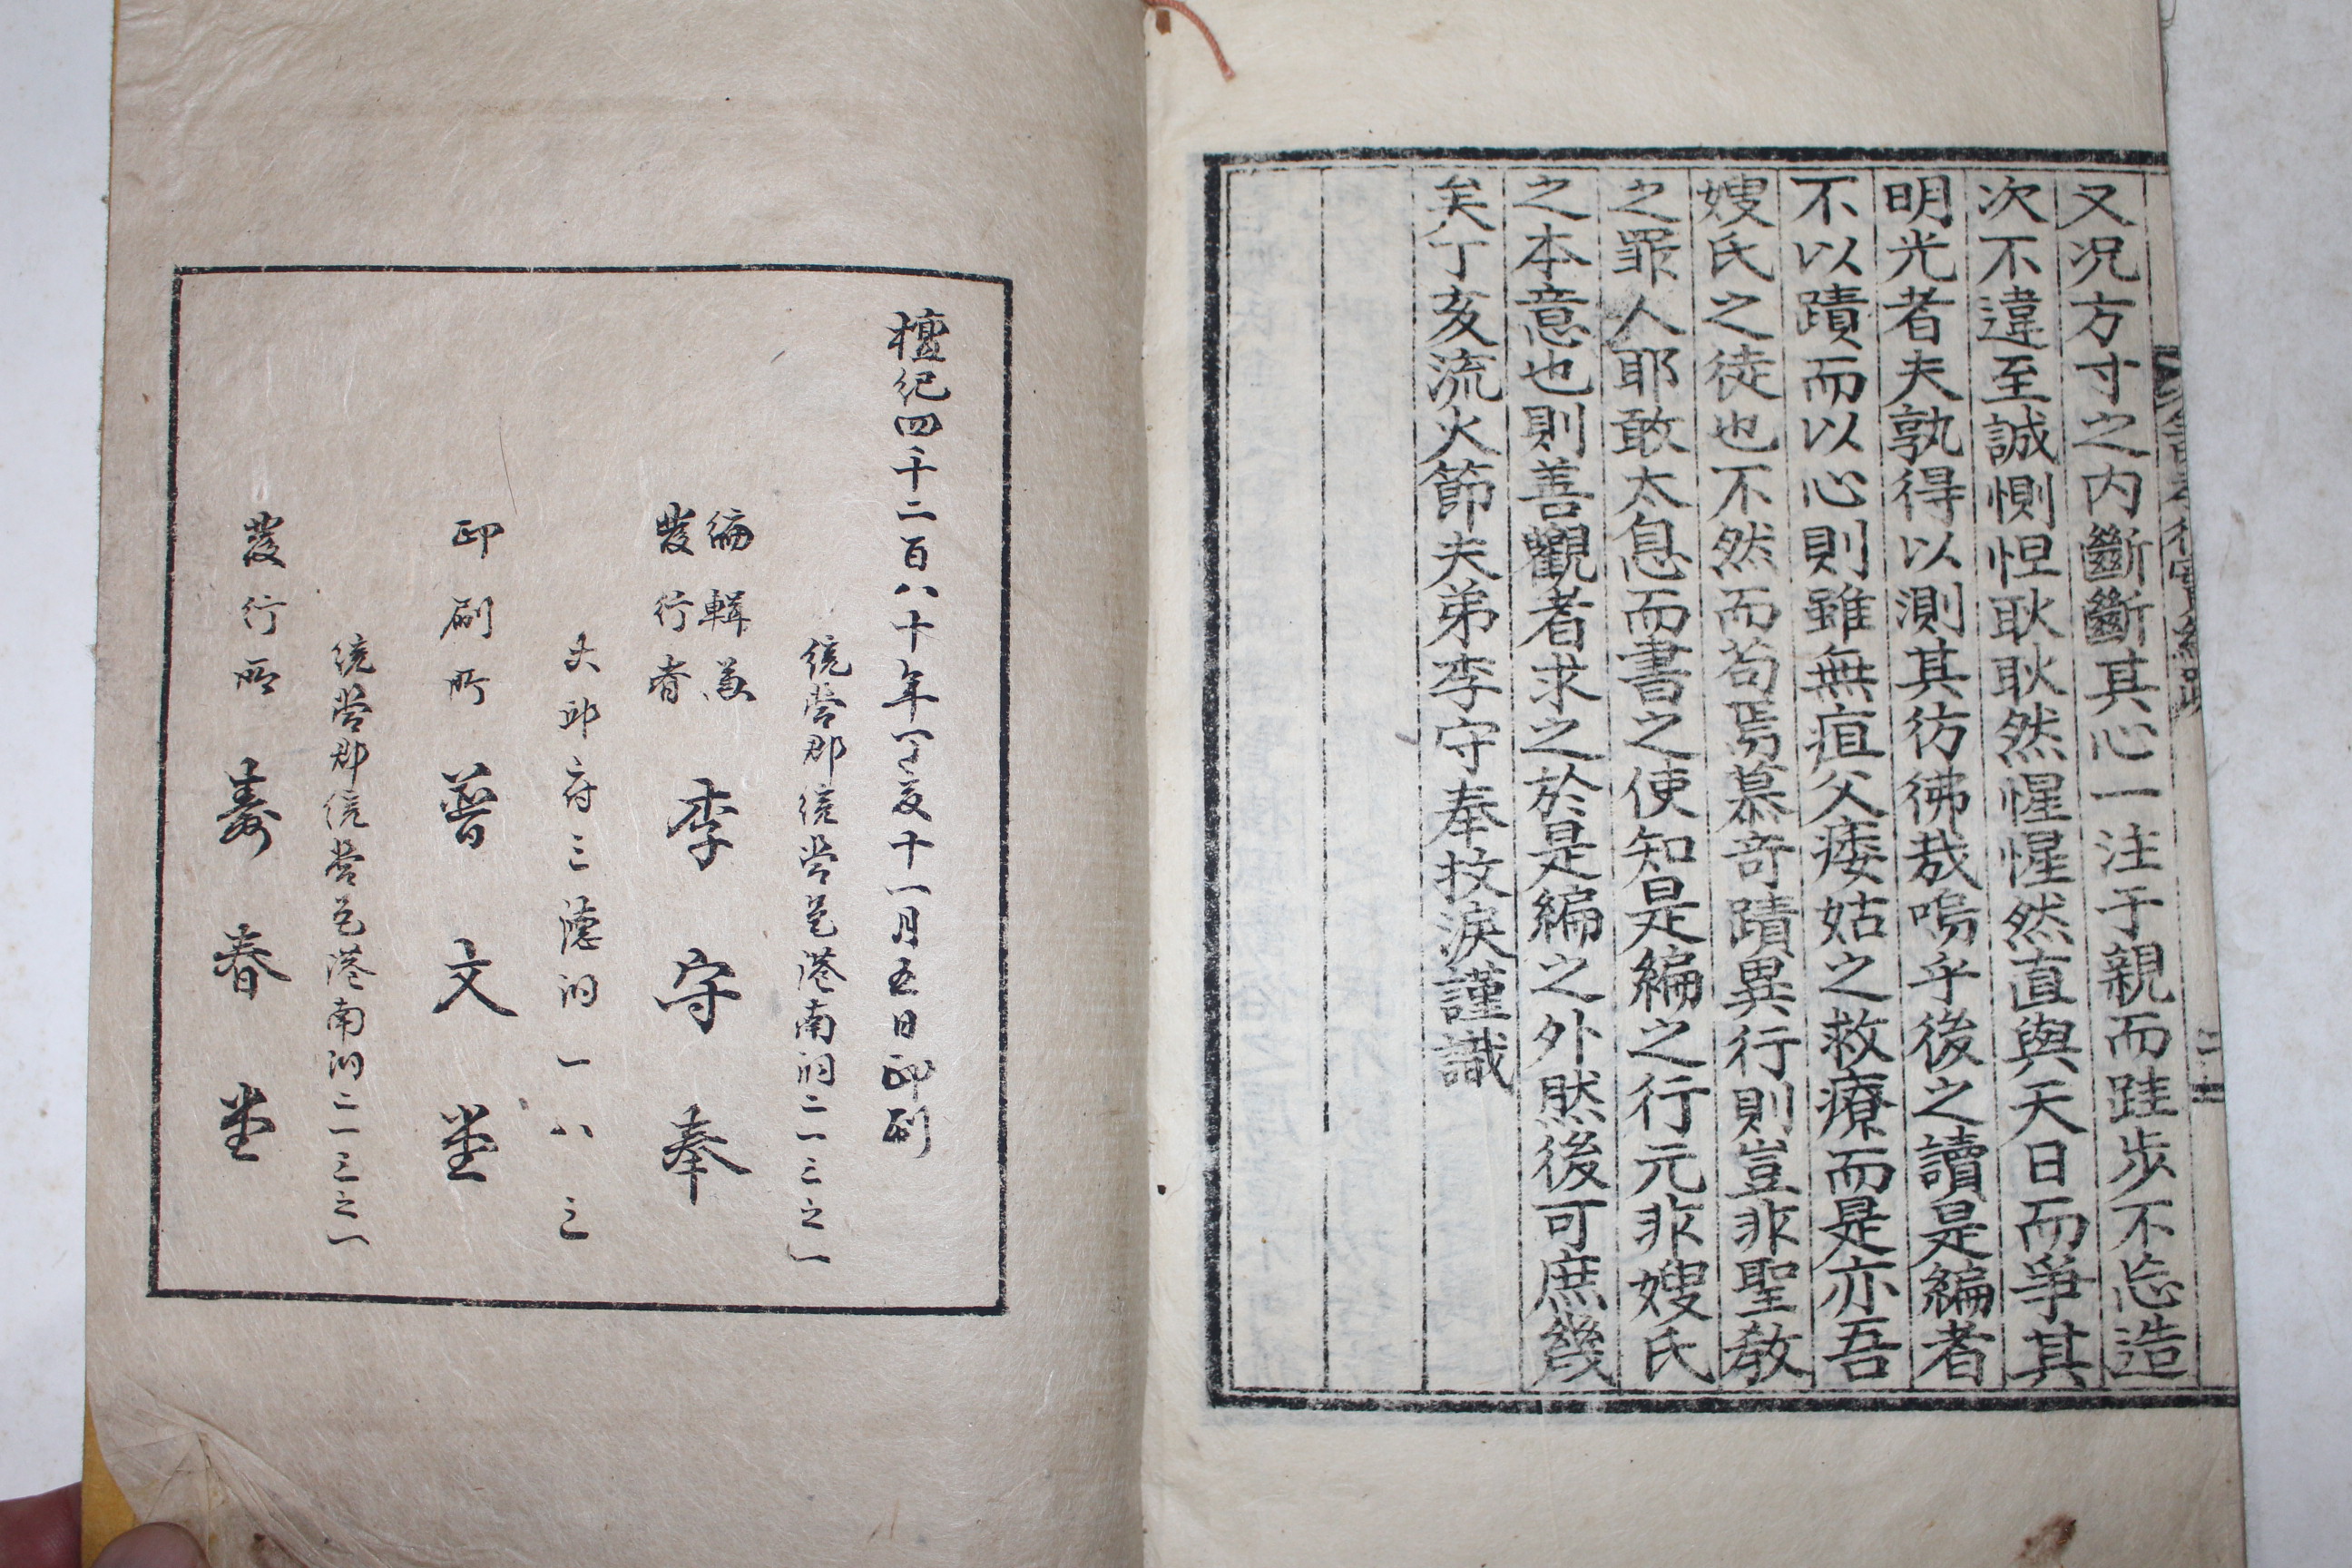 又况方寸之內斷斷其心一注于親而跬步不忘造
次不違至誠惻怛耿耿然惺惺然直與天日而爭其
明光者夫孰得以測其彷彿哉嗚乎後之讀是編者
不以蹟而以心則雖無疽父痿姑之救療而是亦吾
嫂氏之徒也不然而苟焉慕奇蹟異行則豈非聖敎
之罪人耶敢太息而書之使知是編之行元非嫂氏
之本意也則善觀者求之於是編之外然後可庶幾
矣丁亥流火節夫弟李守奉抆淚謹識
檀紀四千二百八十年丁亥十一月五日印刷
統營郡統營邑港南洞二一三之一
編輯兼
發行者 李守奉
大邱府三德洞一八三
印刷所 普文堂
統營郡統營邑港南洞二一三之一
發行所 壽春堂